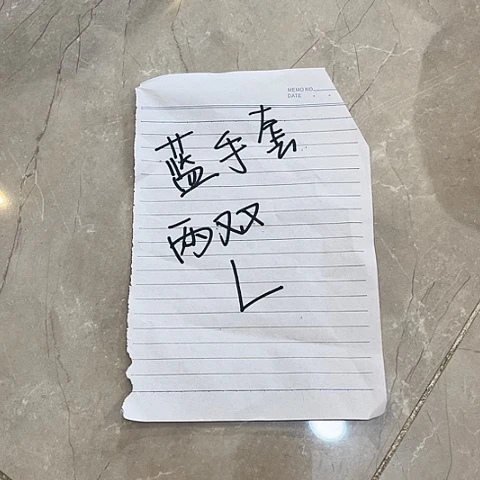 MEMO NO.
DATE
蓝手套
两双
L